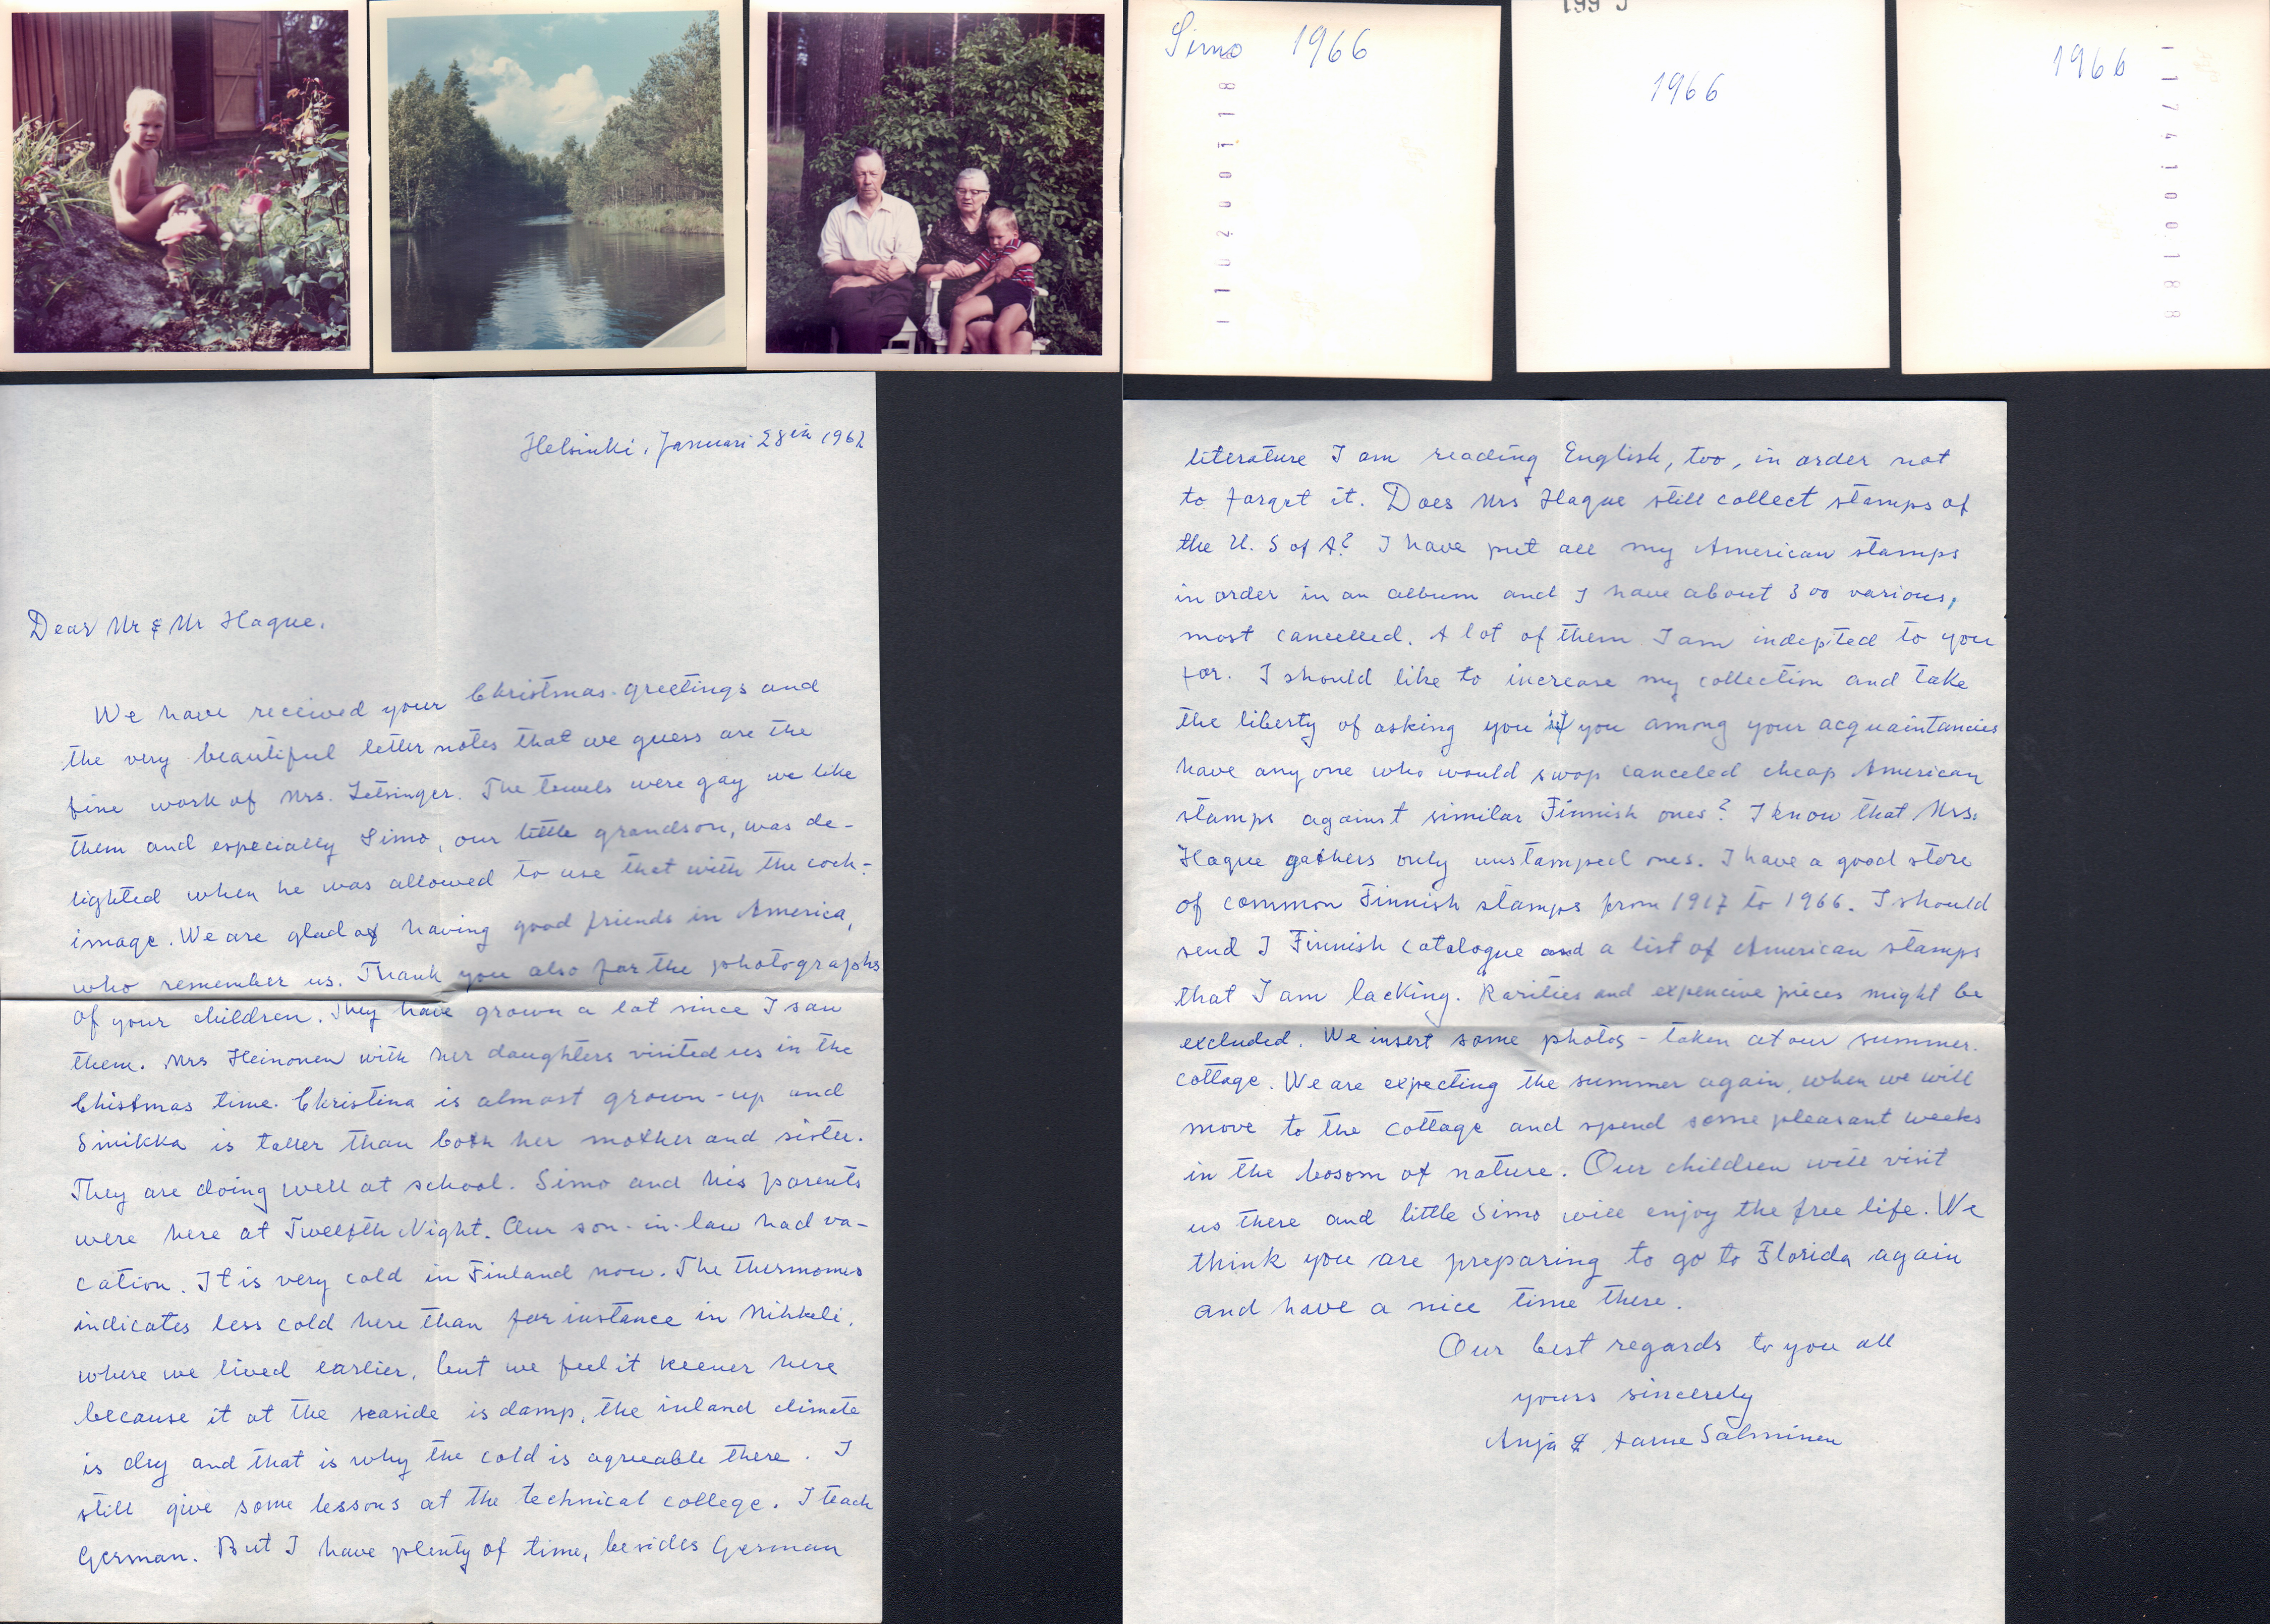 Simo 1966
1 1 0 2 0 0 1 1 8
1966
1966
1 1 7 4 1 0 0 1 8 8
Helsinki, Januari 28th 1967
Dear Mr & Mr Hague.
We have received your Christmas-greetings and
the very beautiful letter notes that we guess are the
fine work of Mrs. Letsinger. The towels were gay we like
them and especially Simo, our little grandson, was de-
lighted when he was allowed to use that with the cock-
image. We are glad of having good friends in America,
who remember us. Thank you also for the photographs
of your children. They have grown a lot since I saw
them. Mrs Heinonen with her daughters visited us in the
Chistmas time. Christina is almost grown-up and
Sinikka is taller than both her mother and sister.
They are doing well at school. Simo and his parents
were here at Twelfth Night. Our son-in-law had va-
cation. It is very cold in Finland now. The thermomes
indicates less cold here than for instance in Mikkeli,
where we lived earlier, but we feel it keener here
because it at the seaside is damp, the inland climate
is dry and that is why the cold is agreeable there. I
still give some lessons at the technical college. I teach
German. But I have plenty of time, besides German
literature I am reading English, too, in order not
to forget it. Does Mrs Hague still collect stamps of
the U. S of A? I have put all my American stamps
in order in an album and I have about 300 various,
most cancelled. A lot of them I am indepted to you
for. I should like to increase my collection and take
the liberty of asking you if you among your acquaintancies
have anyone who would swop canceled cheap American
stamps against similar Finnish ones? I know that Mrs.
Hague gathers only unstamped ones. I have a good store
of common Finnish stamps from 1917 to 1966. I should
send I Finnish catalogue and a list of American stamps
that I am lacking. Rarities and expencive pieces might be
excluded. We insert some photos - taken at our summer.
cottage. We are expecting the summer again, when we will
move to the cottage and spend some pleasant weeks
in the bosom of nature. Our children will visit
us there and little Simo will enjoy the free life. We
think you are preparing to go to Florida again
and have a nice time there.
Our best regards to you all
yours sincerely
Anja & Aarne Salminen